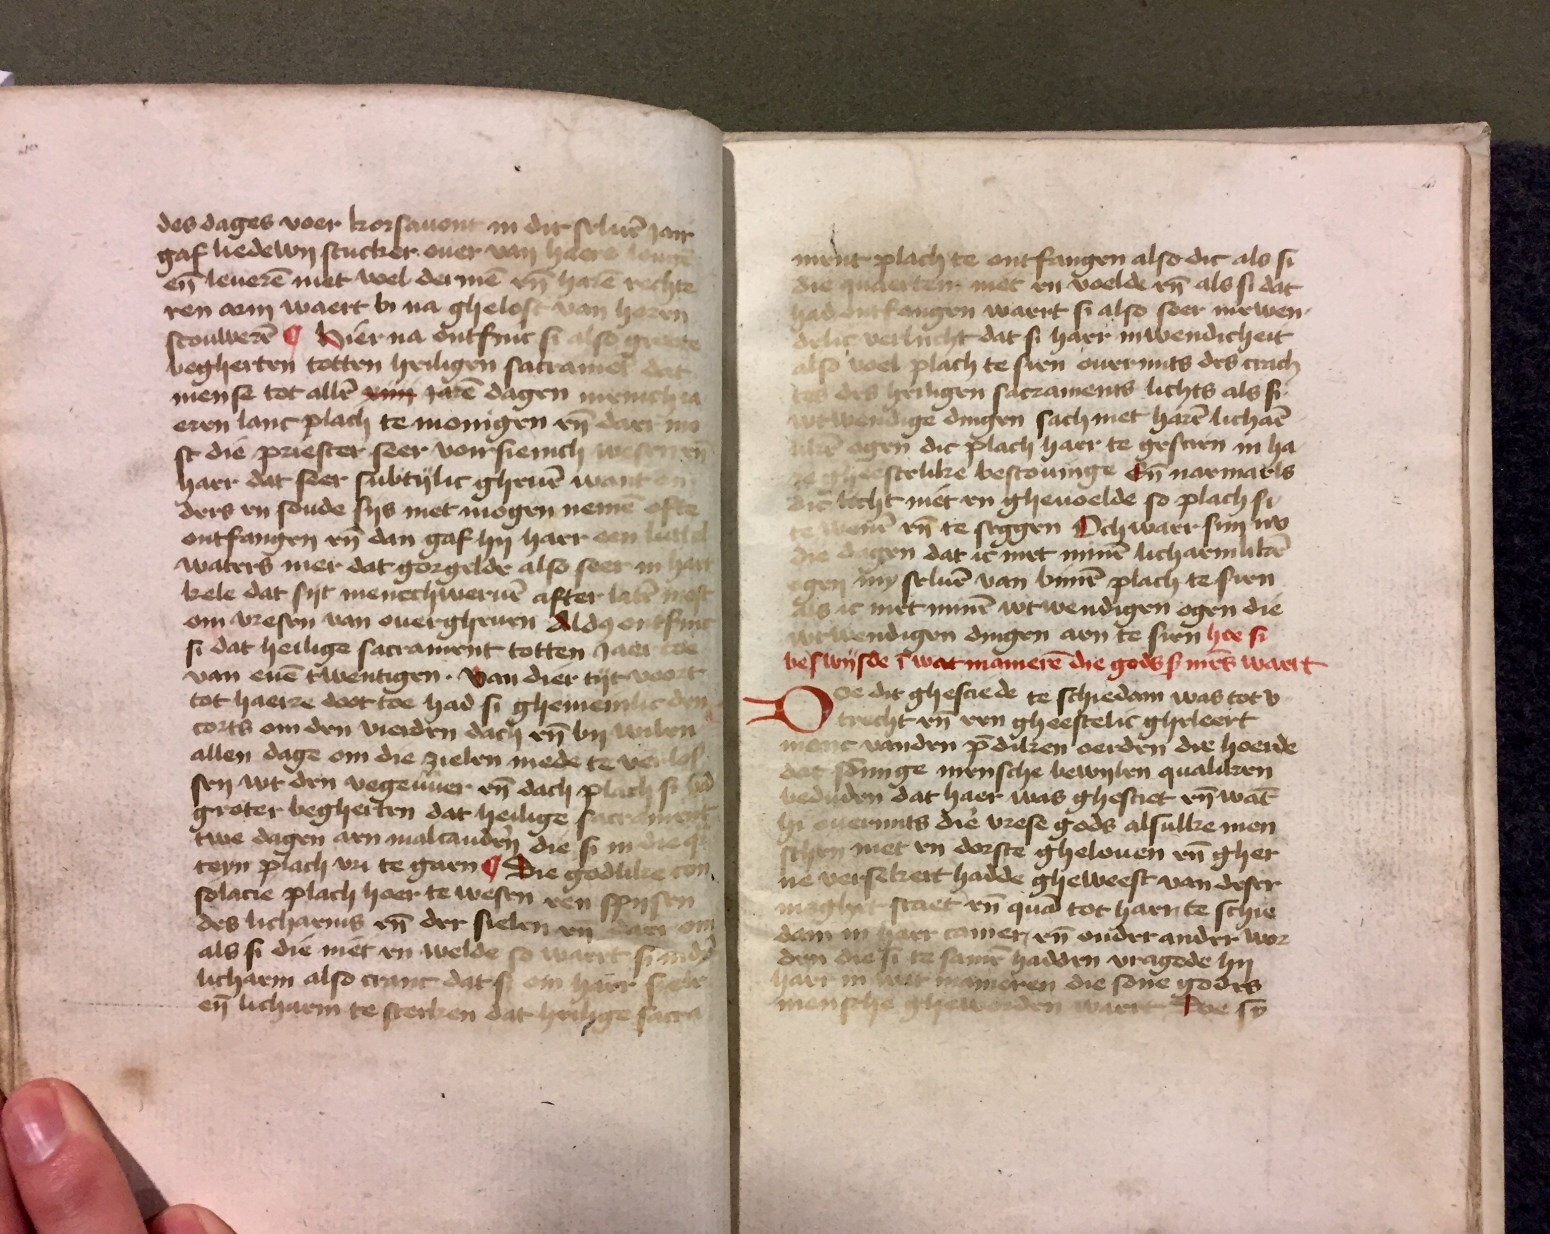 des dages voer korsauont in dit seluē Jair
gaf liedewij stucker ouer van haere longē
eñ leuerē met wel dermē eñ harē rechte
ren arm waert bi na ghelost van heren
stouwerē ¶ Hier na ontfinc si also groete
begherten totten heiligen sacramēt dat
mense tot allē xiiij jarē dagen menich ia
eren lanc plach te monigen eñ daer mo
st die priester seer voirsienich wesen eñ
haer dat seer subtijlic gheuē want an
ders en soude sijs niet mogen nemē ofte
ontfangen eñ dan gaf hij haer een luttel
waters mer dat gorgelde also seer in haer
kele dat sijt menechweruē after latē most
om vresen van ouergheuen Aldꝰ ontfinc
si dat heilige sacrament totten Jaer toe
van euē twentigen. Van dier tijt voort
tot haerre doot toe had si ghemeinlic den
corts om den vierden dach eñ bij wilen
allen dage om die zielen mede te verlos
sen wt den vegeuuer eñ dach plach si bid
groter begherten dat heilige sacrament
twe dagen aen malcandeṙn die si in die q̄r
teyn plach vri te gaen ¶ Die godlike con
solacie plach hoer te wesen een spijsen
des lichaems eñ der sielen eñ daer om
als si die niet en welde so waert si inden
lichaem also cranc dat si om haer siele
eñ lichaem te sterken dat heilige sacra
ment plach te ontfangen also dic als si
die quaertein niet en voelde eñ als si dat
had ontfangen waert si also seer inwen
delic verlucht dat si haer inwendicheit
also wel plach te sien ouermits des crach
tes des heiligen sacraments lichts als si
wtwendige dingen sach met harē lichaē
likē ogen dit plach haer te gescien in ha
re gheestelike bescouinge Eñ naemaels
dit licht niet en gheuoelde so plach si
te wenē eñ te seggen Och waer sijn nv
die dagen dat ic met minē lichaemlikē
ogen my seluē van binnē plach te sien
als ic met minē wtwendigen ogen die
wtwendigen dingen aen te sien hoe si
beswijsde ī wat manierē die gods sī mēs waert
Doe dit ghesciede te schiedam was tot v
trecht eñ een gheestelic gheleert
monc vanden p̄diken oerden die hoerde
dat sōmige mensche bewijlen qualiken
beduden dat haer was ghesciet eñ wāt
hi ouermits die vrese gods alsulke men
schen niet en dorste ghelouen eñ gher
ne versekert hadde gheweest van deser
maghet staet eñ quā tot haer te schie
dam in haer camer eñ onder ander wor
den die si te samē hadden vragede hij
haer in wat manieren die sone godes
mensche gheworden waert Doe sp̄